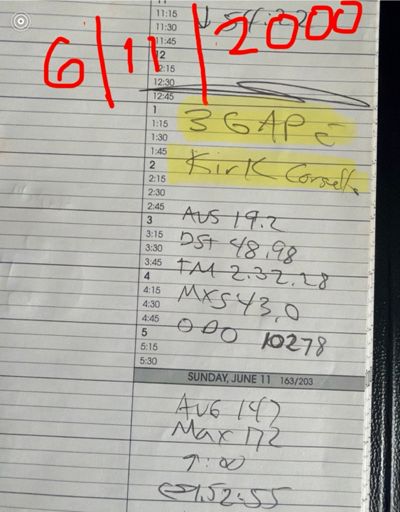 11:15
11:30
11:45
6/11/2000
12
12:15
12:30
12:45
1
1:15 3 GAP
1:30
1:45
2 Kirk
2:15
2:30
2:45
3 AVS 19.2
3:15 DST 48.98
3:30
3:45 TM 2.32.28
4
4:15 MXS 43.0
4:30
4:45 ODO 10278
5
5:15
5:30
SUNDAY, JUNE 11 163/203
AVG 147
Max 172